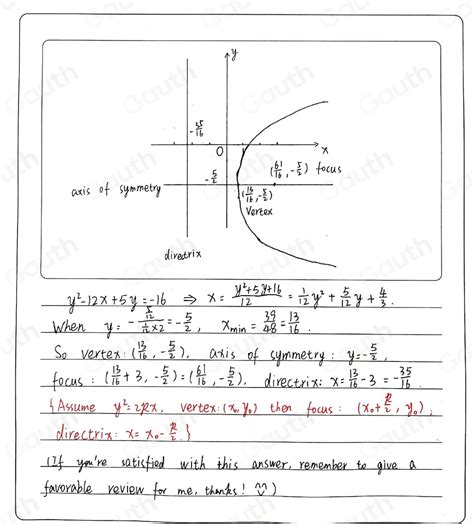 y
-35/16
O
x
-5/2
(61/16, -5/2) focus
axis of symmetry
(13/16, -5/2)
Vertex
directrix
y²-12x+5y=-16 ⇒ x= (y²+5y+16)/12 = 1/12 y² + 5/12 y + 4/3.
When y= - (5/12)/(1/12 ×2) = -5/2, x min = 39/48 = 13/16.
So vertex: (13/16, -5/2), axis of symmetry: y=-5/2,
focus: (13/16 + 3, -5/2) = (61/16, -5/2), directrix: x= 13/16 - 3 = -35/16.
{Assume y²=2px, vertex: (x₀, y₀) then focus: (x₀+ p/2, y₀),
directrix: x= x₀- p/2.}
(If you're satisfied with this answer, remember to give a
favorable review for me, thanks!